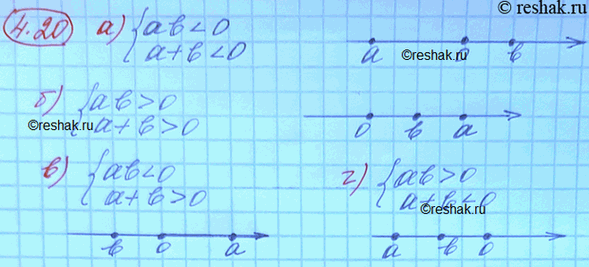 © reshak.ru
4.20 а) { ab < 0
a + b < 0
a 0 b
©reshak.ru
б) { ab > 0
a + b > 0
©reshak.ru
0 b a
в) { ab < 0
a + b > 0
b 0 a
г) { ab > 0
a + b < 0
©reshak.ru
a b 0